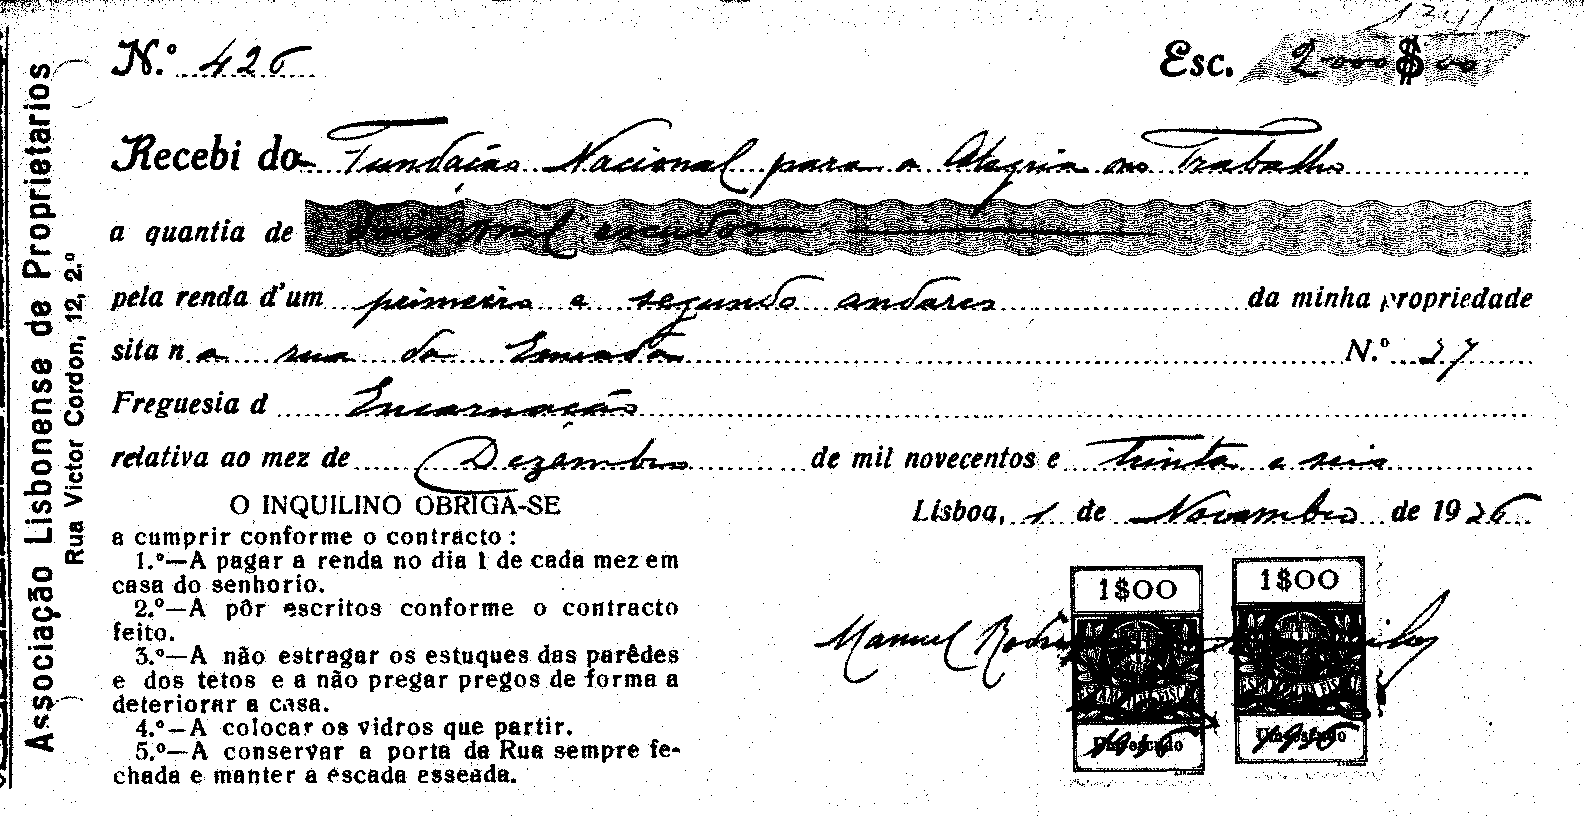 Associação Lisbonense de Proprietarios
Rua Victor Cordon, 12, 2.º
N.º 426
Esc. 2.000$00
Recebi da Fundação Nacional para a Alegria no Trabalho
a quantia de dois mil escudos
pela renda d'um primeiro e segundo andares da minha propriedade
sita n a rua da Emenda N.º 27
Freguesia d Encarnação
relativa ao mez de Dezembro de mil novecentos e trinta e seis
Lisboa, 1 de Novembro de 1936
O INQUILINO OBRIGA-SE
a cumprir conforme o contracto :
1.º—A pagar a renda no dia 1 de cada mez em
casa do senhorio.
2.º—A pôr escritos conforme o contracto
feito.
3.º—A não estragar os estuques das parêdes
e dos tetos e a não pregar pregos de forma a
deteriorar a casa.
4.º—A colocar os vidros que partir.
5.º—A conservar a porta da Rua sempre fe-
chada e manter a escada esseada.
1$00
1$00
Manuel
1936
1936